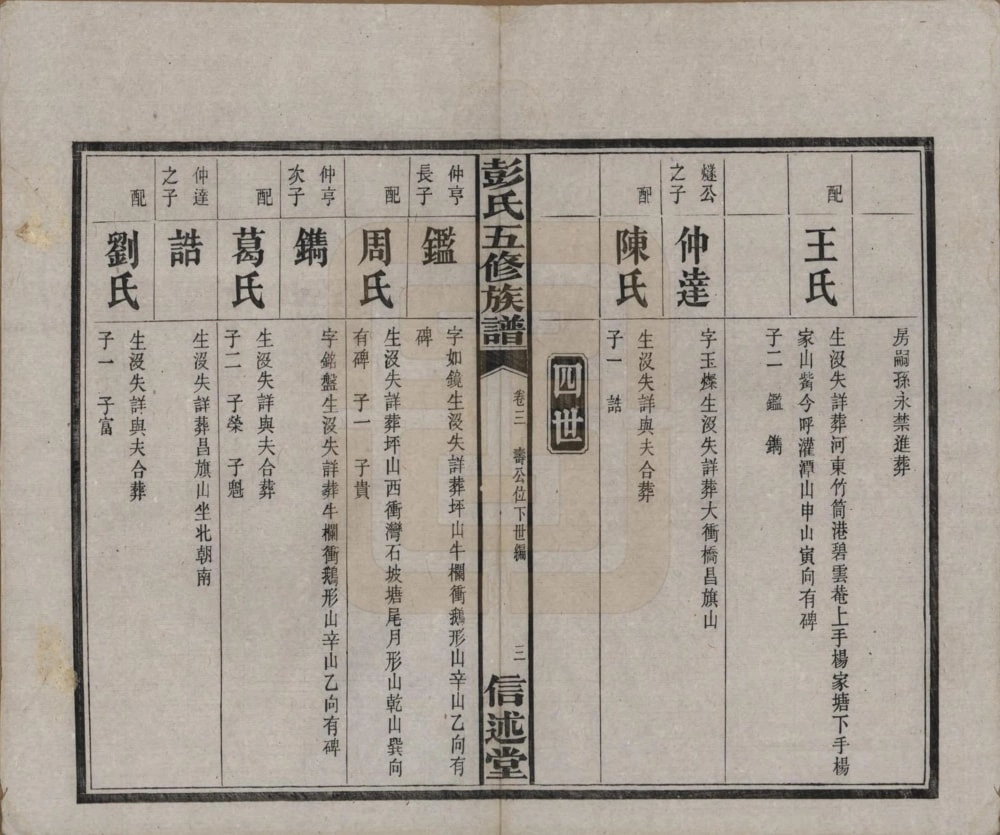 房嗣孫永禁進葬
配
王氏
生沒失詳葬河東竹筒港碧雲菴上手楊家塘下手楊
家山觜今呼灌潭山申山寅向有碑
子二　鑑　鐫
燧公
之子
仲達
字玉燦生沒失詳葬大衝橋昌旗山
配
陳氏
生沒失詳與夫合葬
子一　誥
四世
彭氏五修族譜
卷三　壽公位下世編
三
信述堂
仲亨
長子
鑑
字如鏡生沒失詳葬坪山牛欄衝鵝形山辛山乙向有
碑
配
周氏
生沒失詳葬坪山西衝灣石坡塘尾月形山乾山巽向
有碑　子一　子貴
仲亨
次子
鐫
字銘盤生沒失詳葬牛欄衝鵝形山辛山乙向有碑
配
葛氏
生沒失詳與夫合葬
子二　子榮　子魁
仲達
之子
誥
生沒失詳葬昌旗山坐北朝南
配
劉氏
生沒失詳與夫合葬
子一　子富